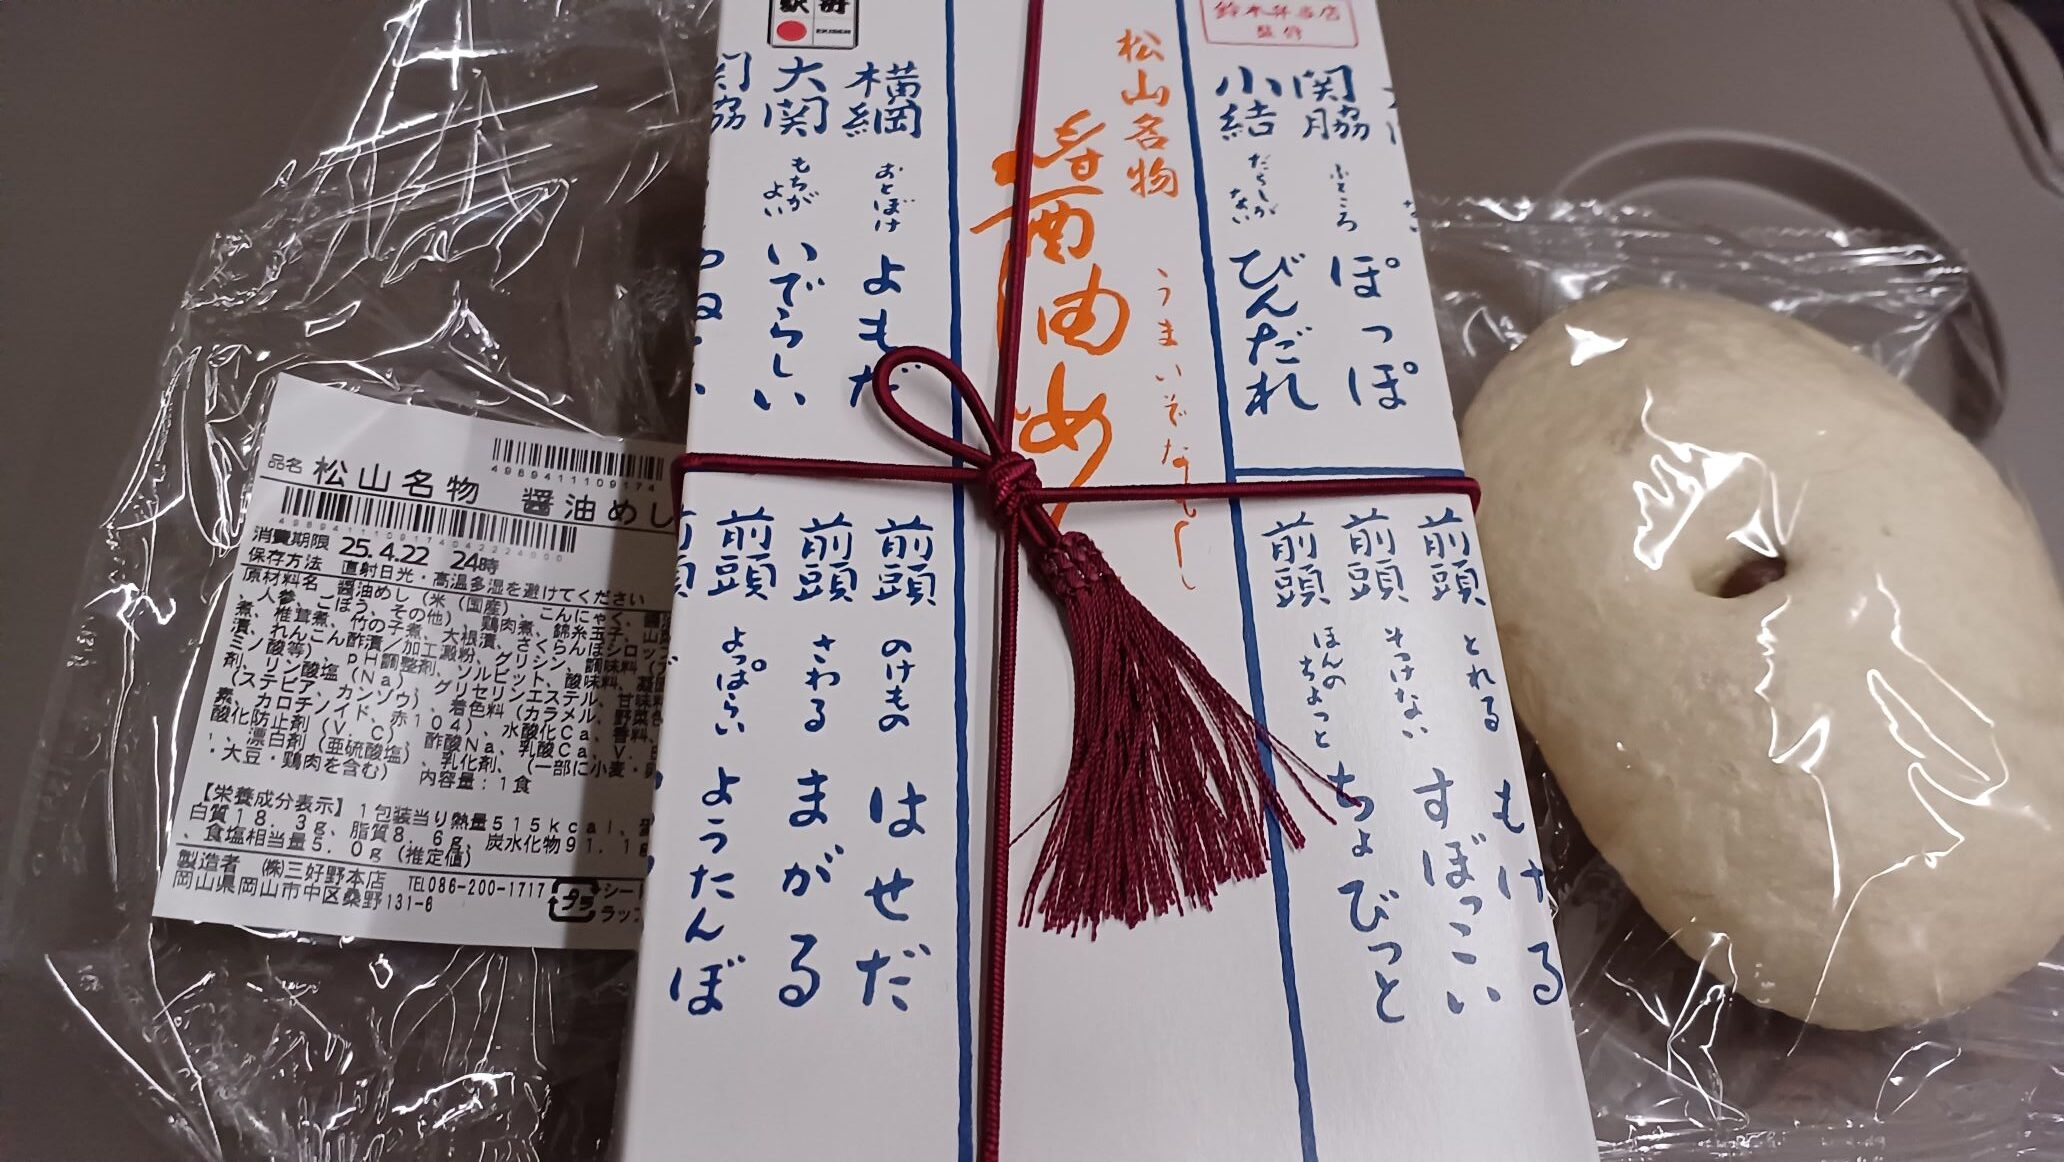 松山名物
醤油め
うまいぞなもし
鈴木弁当店
監修
EKIBEN
横綱
おとぼけ
よもだ
大関
もちが
よい
いでらしい
関脇
ふところ
ぽっぽ
小結
だらしが
ない
びんだれ
前頭
とれる
もげる
前頭
そっけない
すぼっこい
前頭
ほんの
ちょっと
ちょびっと
前頭
のけもの
はせだ
前頭
さわる
まがる
前頭
よっぱらい
ようたんぼ
4989411109174
品名 松山名物 醤油めし
4989411109174042224000
消費期限 25.4.22 24時
保存方法 直射日光・高温多湿を避けてください
原材料名 醤油めし(米(国産)、こんにゃく、醤油
、人参、ごぼう、その他)、鶏肉煮、錦糸玉子、山
煮、椎茸煮、竹の子煮、大根漬、さくらんぼシロップ
漬、れんこん酢漬/加工澱粉、グリシン、調味料(ア
ミノ酸等)、pH調整剤、ソルビット、酸味料、凝固
剤、リン酸塩(Na)、グリセリンエステル、甘味料
(ステビア、カンゾウ)、着色料(カラメル、野菜色
素、カロチノイド、赤104)、水酸化Ca、香料、
酸化防止剤(V.C)、酢酸Na、乳酸Ca、V.B
、漂白剤(亜硫酸塩)、乳化剤、(一部に小麦・卵
・大豆・鶏肉を含む) 内容量:1食
【栄養成分表示】1包装当り熱量515kcal、
白質18.3g、脂質8.6g、炭水化物91.1g
、食塩相当量5.0g(推定値)
製造者 (株)三好野本店 TEL086-200-1717
岡山県岡山市中区桑野131-6
プラ
シート
ラップ